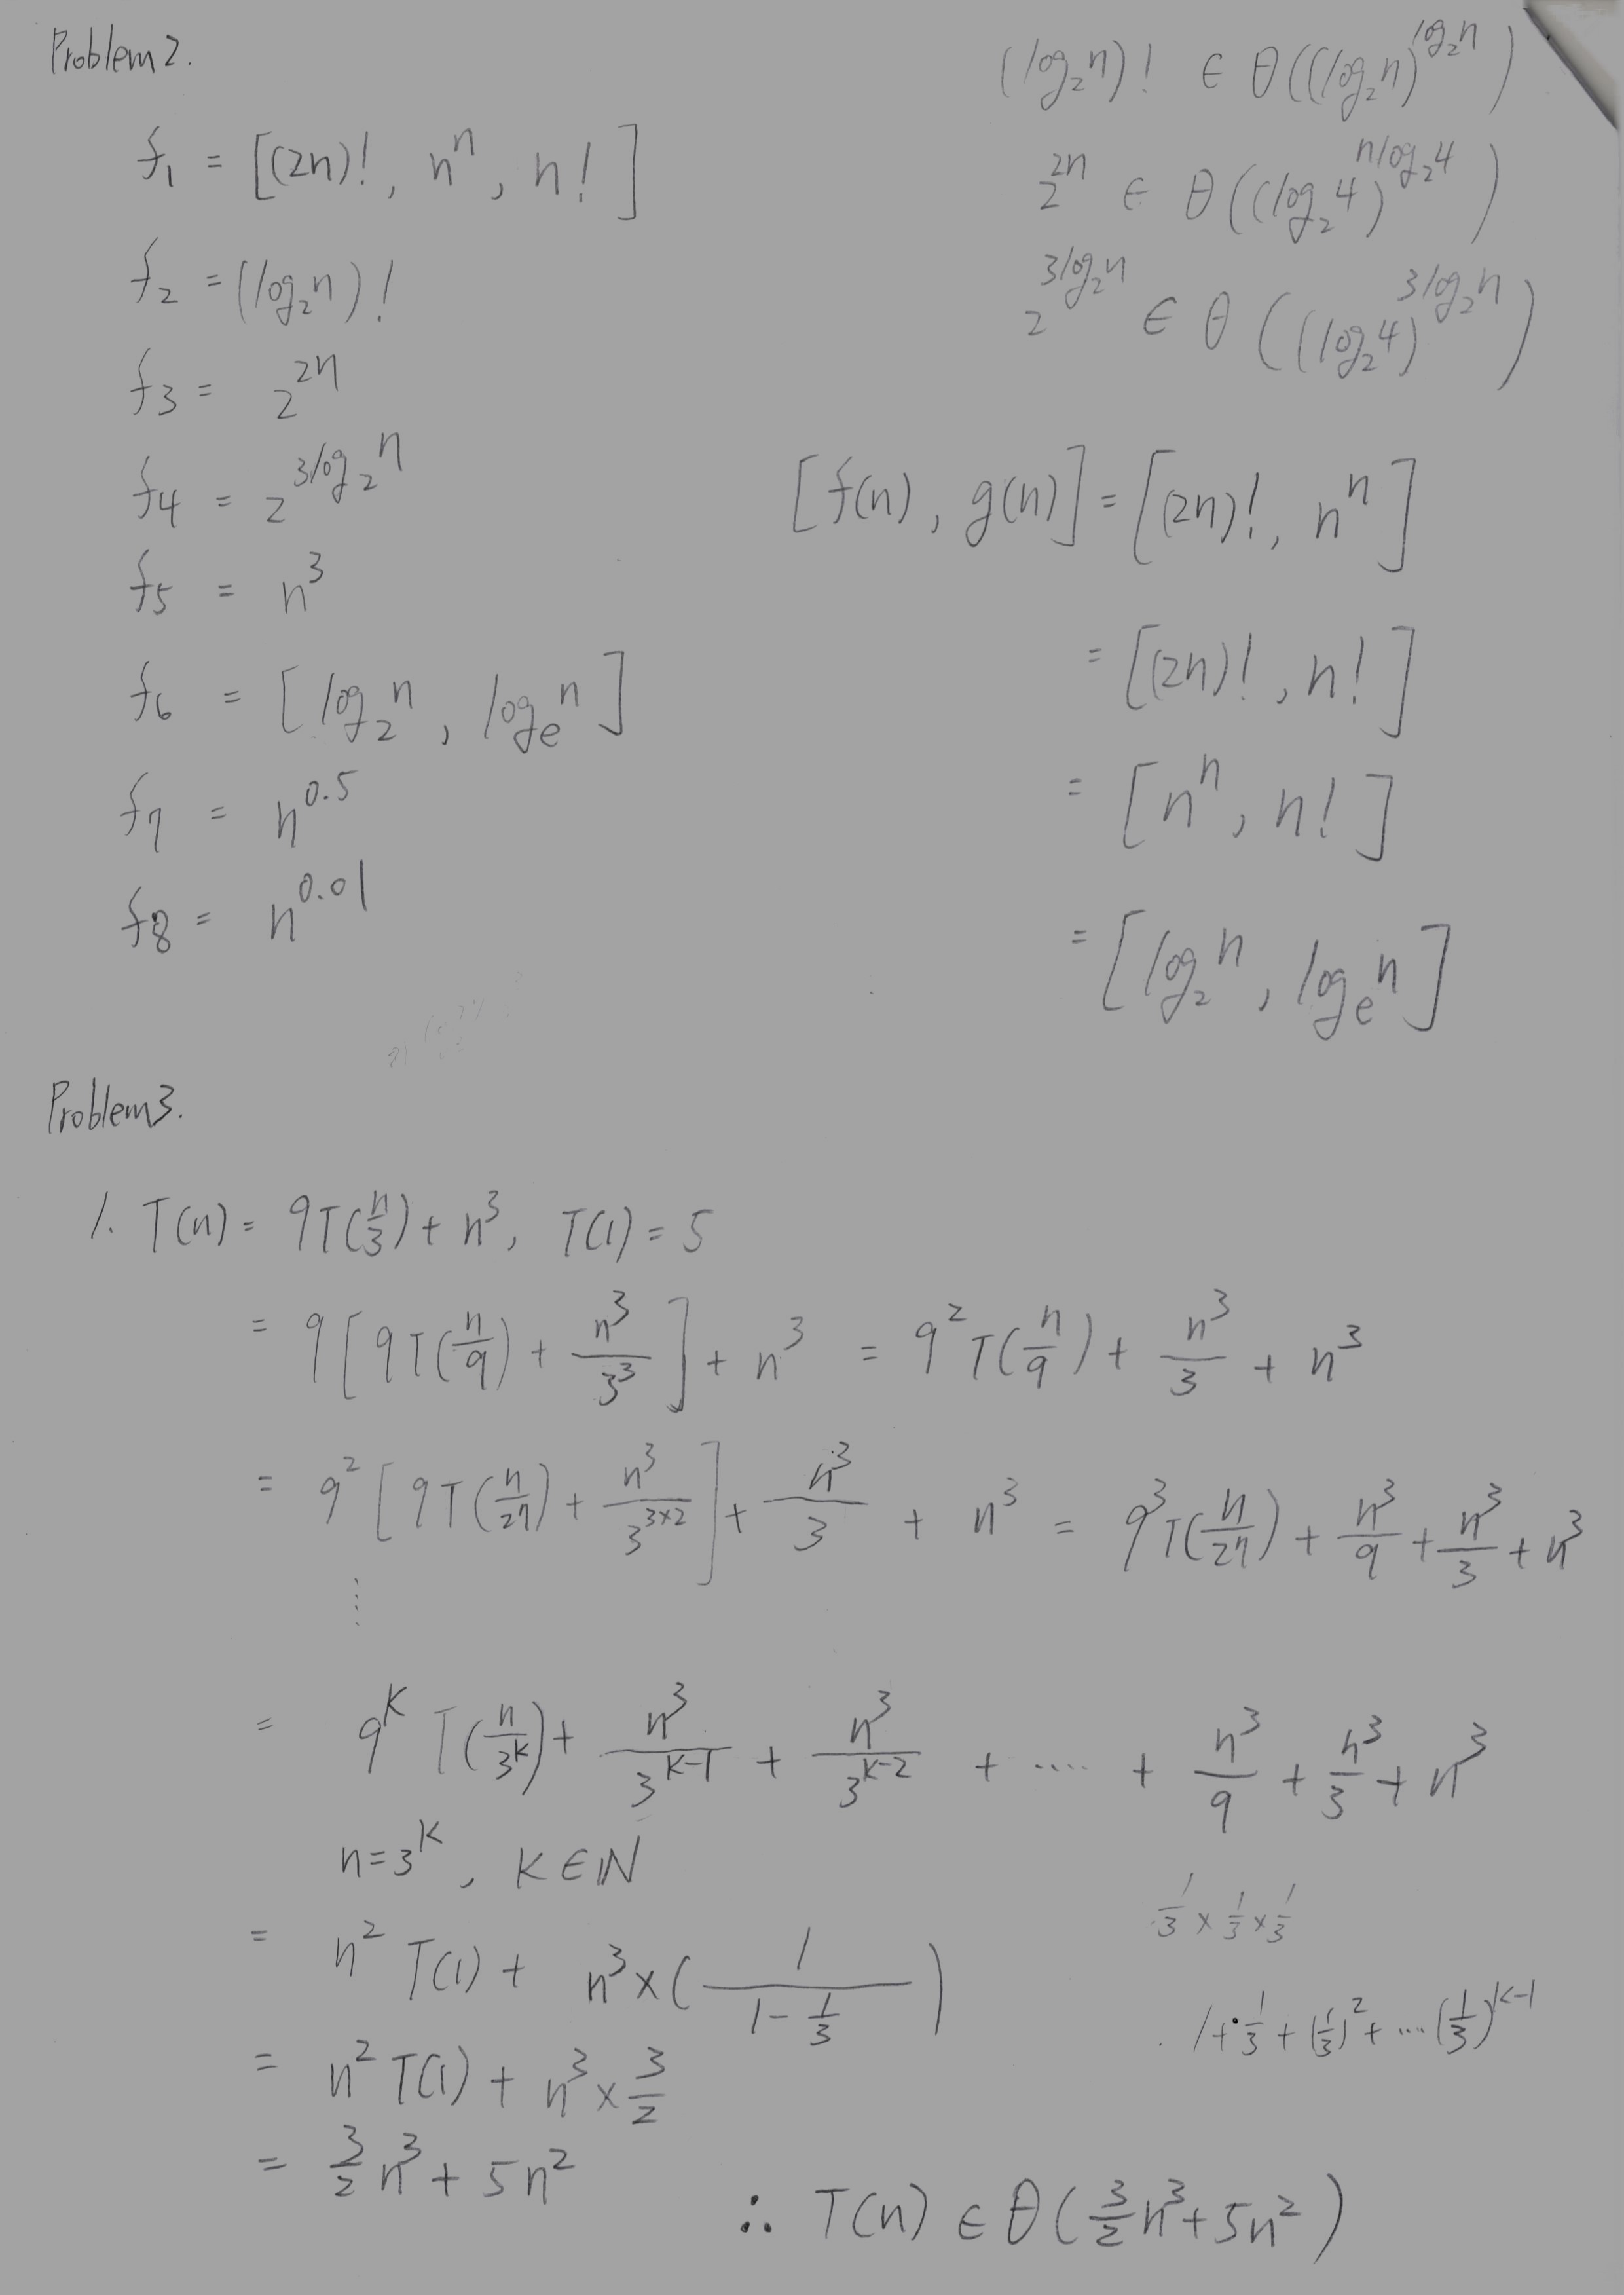 Problem 2.
f₁ = [(2n)!, nⁿ, n!]
f₂ = (log₂n)!
f₃ = 2^{2n}
f₄ = 2^{3log₂n}
f₅ = n³
f₆ = [log₂n, logₑn]
f₇ = n^{0.5}
f₈ = n^{0.01}
(log₂n)! ∈ θ((log₂n)^{log₂n})
2^{2n} ∈ θ((log₂4)^{nlog₂4})
2^{3log₂n} ∈ θ((log₂4)^{3log₂n})
[f(n), g(n)] = [(2n)!, nⁿ]
= [(2n)!, n!]
= [nⁿ, n!]
= [log₂n, logₑn]
Problem 3.
1. T(n) = 9T(n/3) + n³, T(1) = 5
= 9[9T(n/9) + n³/3³] + n³ = 9²T(n/9) + n³/3 + n³
= 9²[9T(n/27) + n³/3^{3×2}] + n³/3 + n³ = 9³T(n/27) + n³/9 + n³/3 + n³
⋮
= 9^K T(n/3^K) + n³/3^{K-1} + n³/3^{K-2} + ..... + n³/9 + n³/3 + n³
n = 3^K, K ∈ ℕ
= n² T(1) + n³ × (1/(1 - 1/3))
1/3 × 1/3 × 1/3
1 + 1/3 + (1/3)² + .... (1/3)^{K-1}
= n² T(1) + n³ × 3/2
= 3/2 n³ + 5n²
∴ T(n) ∈ θ(3/2 n³ + 5n²)